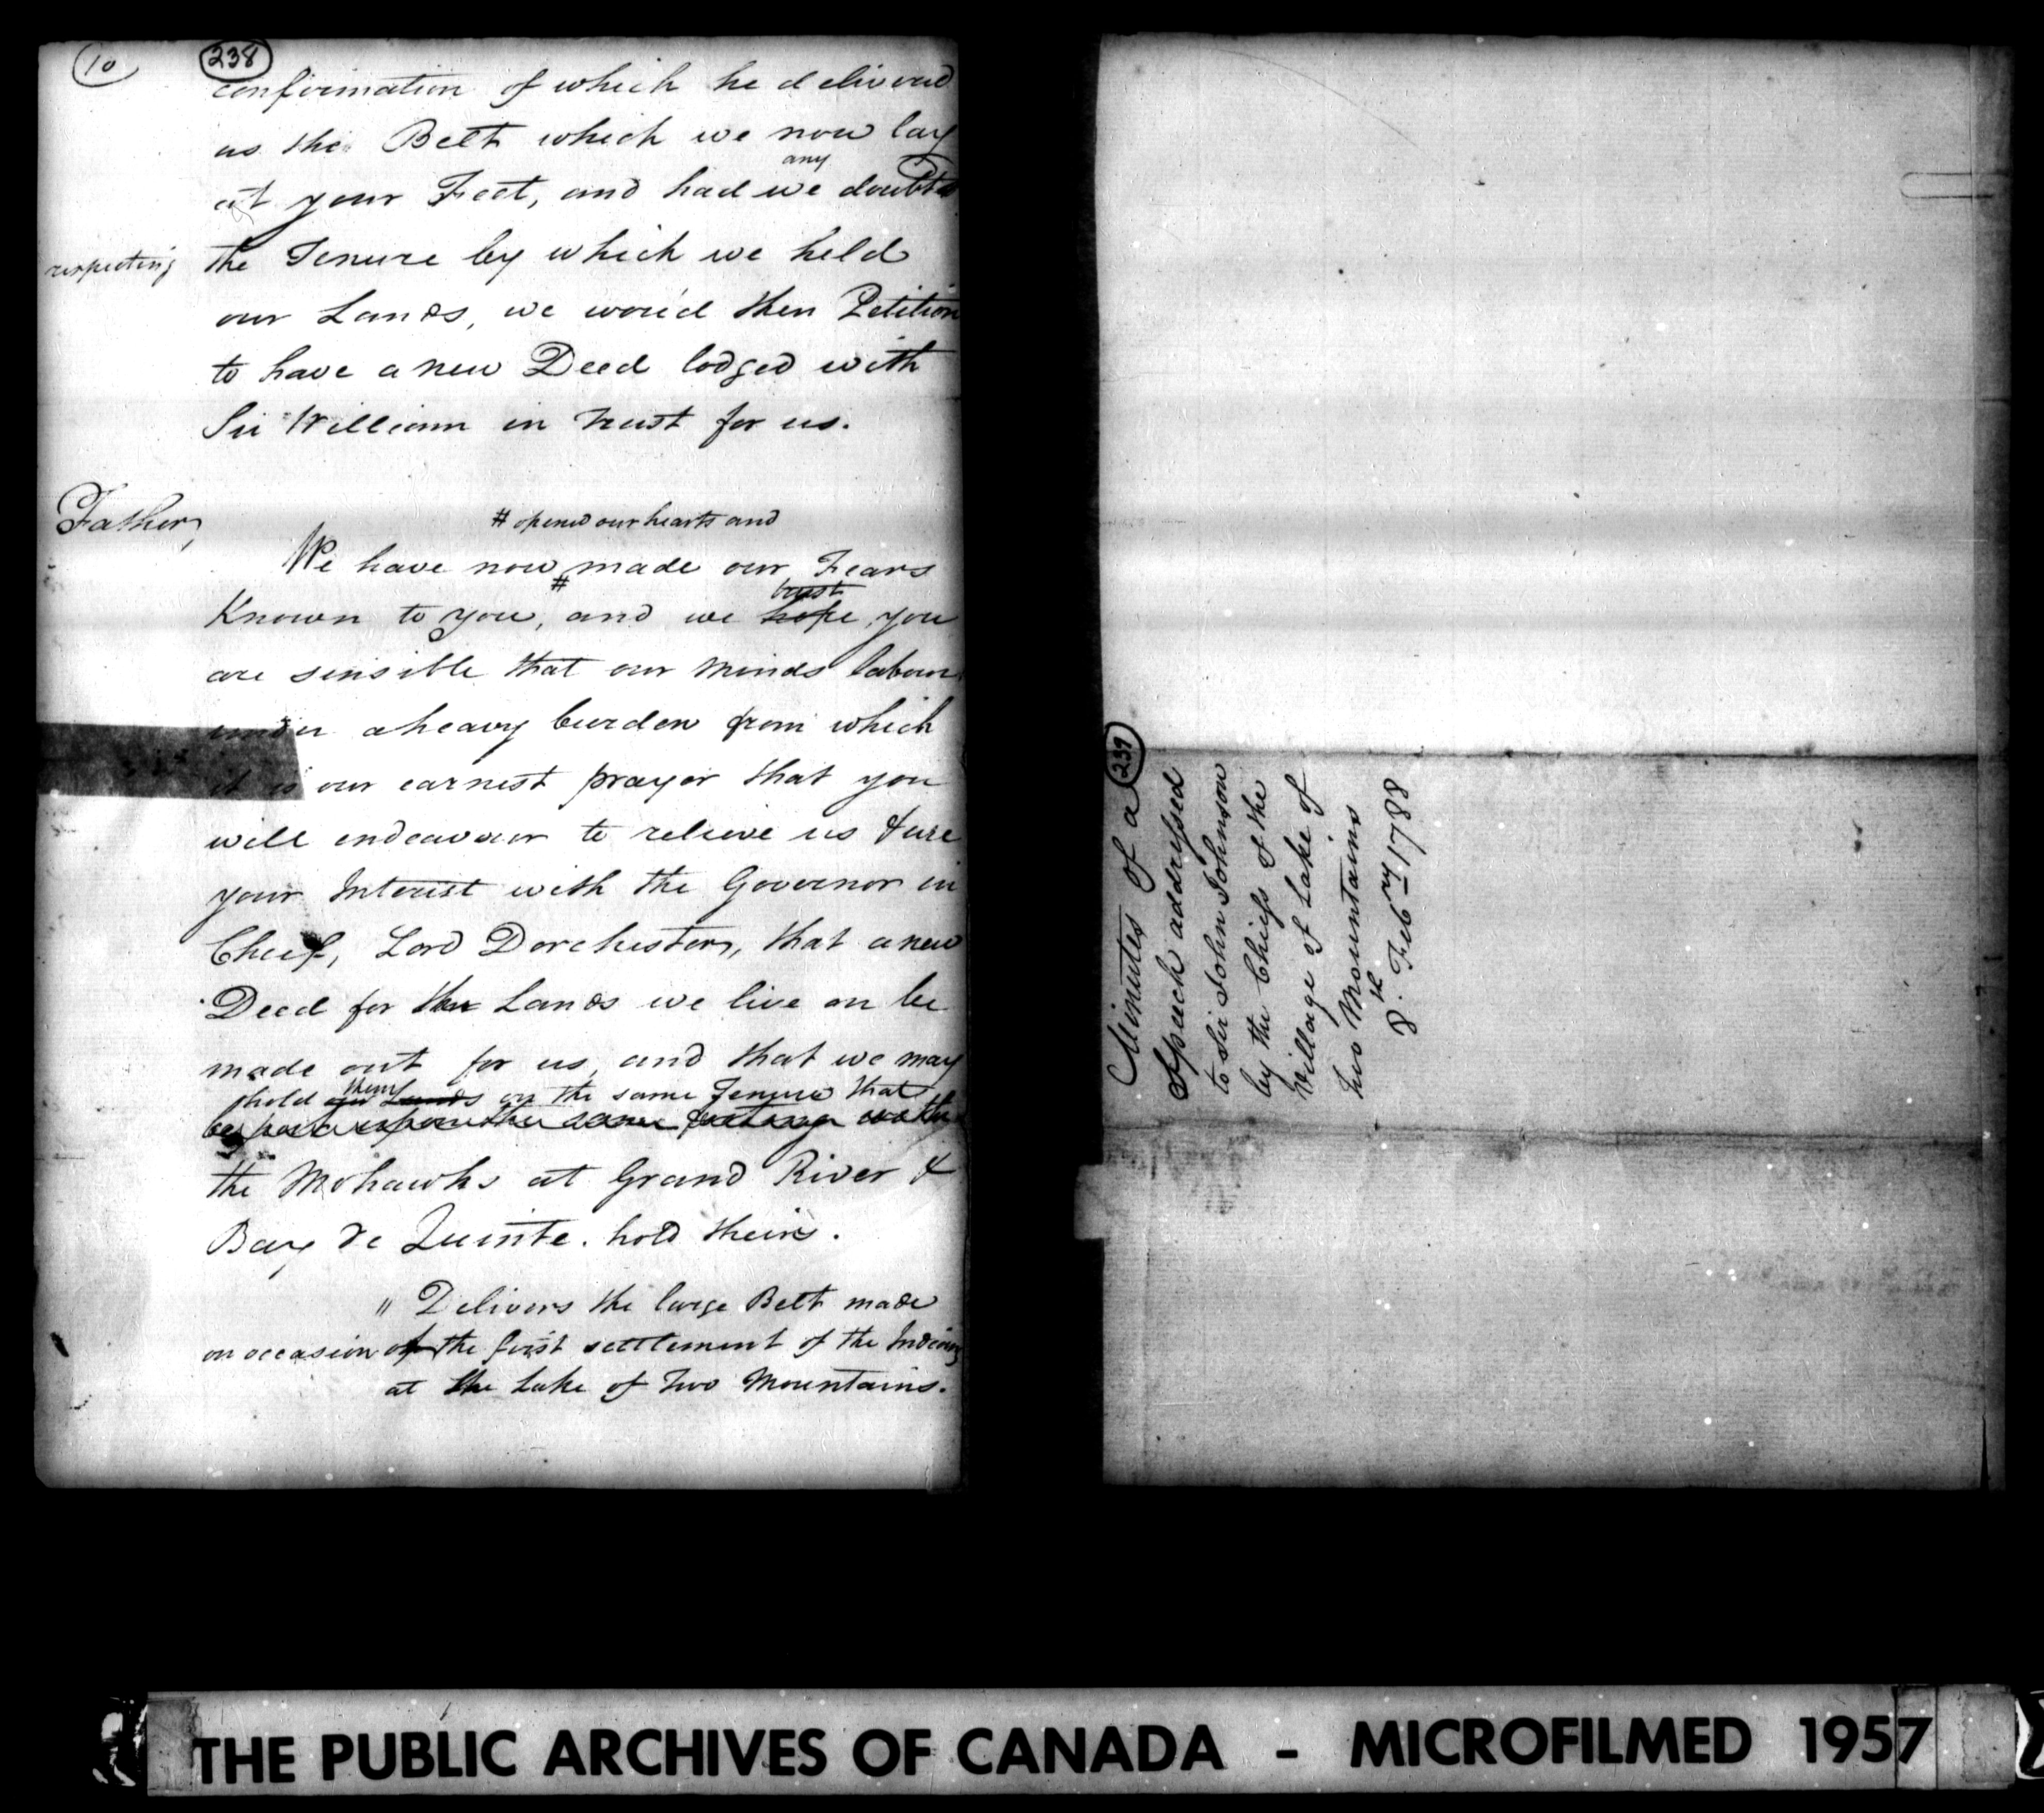 10
238
confirmation of which he delivered
us the Belt which we now lay
any
at your Feet, and had we doubts
respecting the Tenure by which we held
our Lands, we wou'd then Petition
to have a new Deed lodged with
Sir William in trust for us.
Father,
# opened our hearts and
We have now # made our Fears
trust
Known to you, and we hope, you
are sensible that our minds labour
under a heavy burden from which
it is our earnest prayer that you
will endeavour to relieve us & use
your Interest with the Governor in
Cheif, Lord Dorchester, that a new
Deed for the Lands we live on be
made out for us, and that we may
them
hold our Lands on the same Tenure that
be put upon the same footing with
the Mohawks at Grand River &
Bay de Quinte. hold theirs.
" Delivers the large Belt made
on occasion of the first settlement of the Indians
at the Lake of two Mountains.
239
Minutes of a
Speech addressed
to Sir John Johnson
by the Chiefs of the
Village of Lake of
two Mountains
8th. Febry 1788
THE PUBLIC ARCHIVES OF CANADA - MICROFILMED 1957